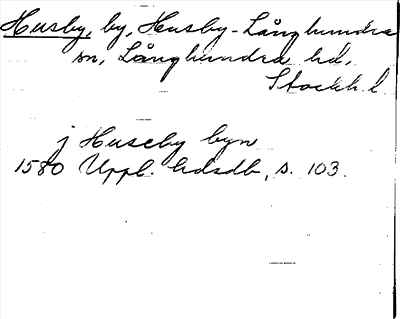 Husby, by, Husby-Långhundra
sn, Långhundra hd,
Stockh. l
j Huseby byn
1580 Uppl. hdsdb, s. 103.